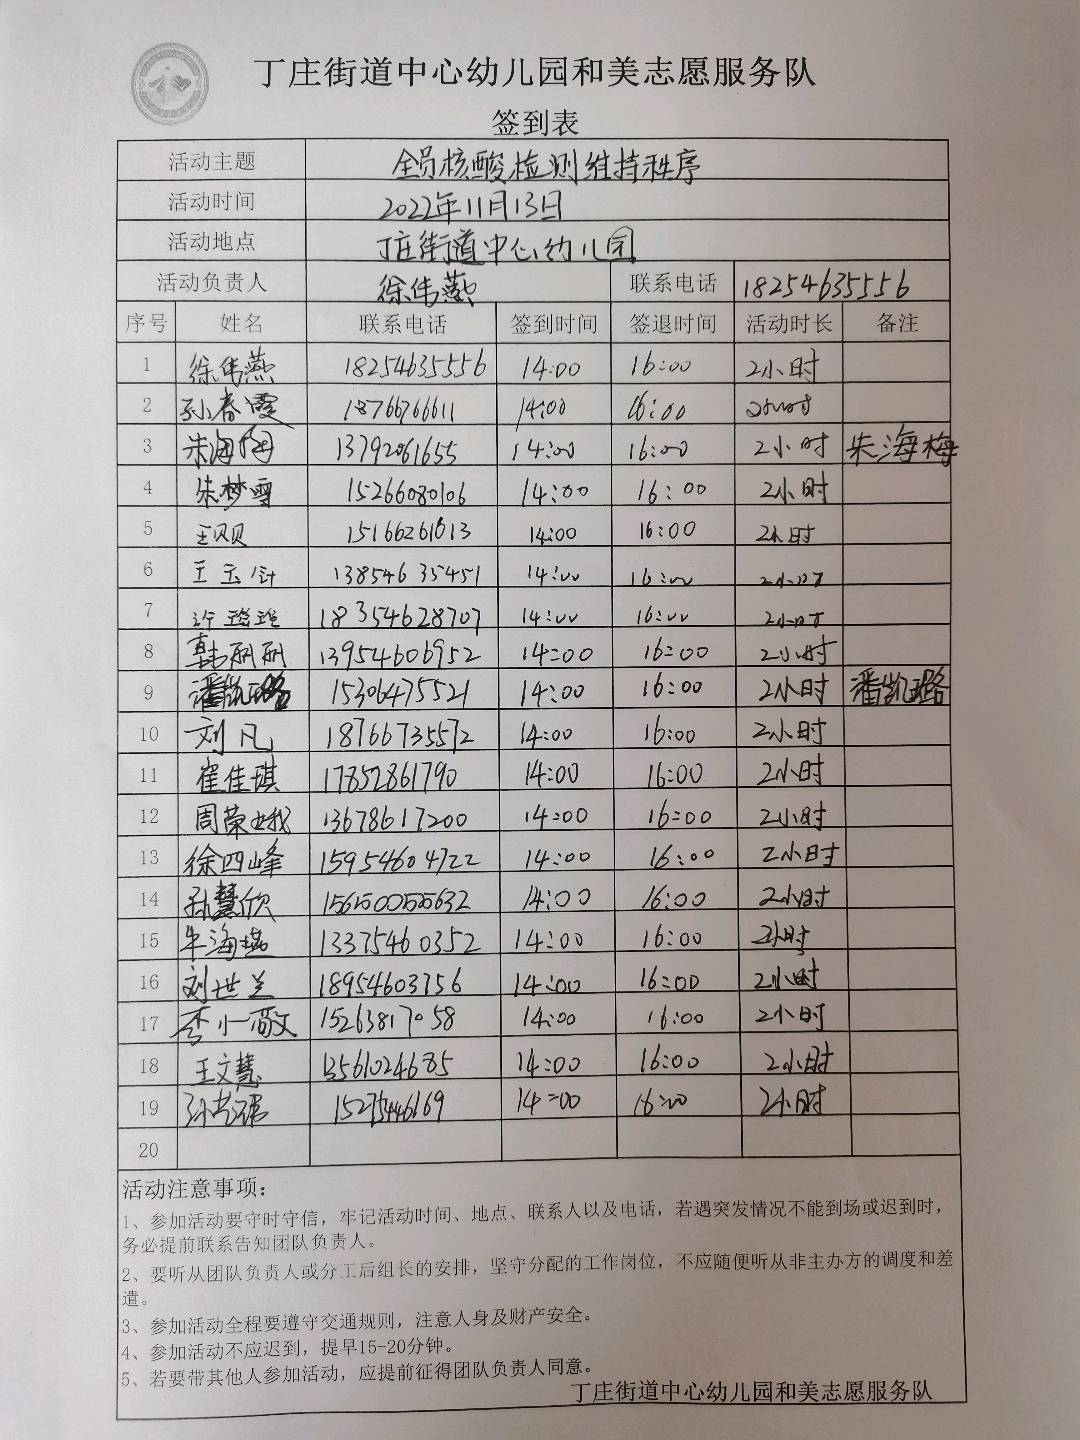 丁庄街道中心幼儿园和美志愿服务队
签到表
活动主题 全员核酸检测维持秩序
活动时间 2022年11月13日
活动地点 丁庄街道中心幼儿园
活动负责人 徐伟燕 联系电话 18254635556
序号 姓名 联系电话 签到时间 签退时间 活动时长 备注
1 徐伟燕 18254635556 14:00 16:00 2小时
2 孙春霞 18766766611 14:00 16:00 2小时
3 朱海梅 13792061655 14:00 16:00 2小时 朱海梅
4 朱梦雪 15266080106 14:00 16:00 2小时
5 王贝贝 15166261013 14:00 16:00 2小时
6 王玉 13854635451 14:00 16:00 2小时
7 许 18354628707 14:00 16:00 2小时
8 韩丽丽 13954606952 14:00 16:00 2小时
9 潘凯璐 15306475521 14:00 16:00 2小时 潘凯璐
10 刘凡 18766735572 14:00 16:00 2小时
11 崔佳琪 17852861790 14:00 16:00 2小时
12 周荣娥 13678617200 14:00 16:00 2小时
13 徐四峰 15954604722 14:00 16:00 2小时
14 孙慧欣 15650055632 14:00 16:00 2小时
15 牛海燕 13375460352 14:00 16:00 2小时
16 刘世兰 18954603756 14:00 16:00 2小时
17 李小敏 15263817058 14:00 16:00 2小时
18 王文慧 13561024685 14:00 16:00 2小时
19 15275446169 14:00 16:00 2小时
20
活动注意事项：
1、参加活动要守时守信，牢记活动时间、地点、联系人以及电话，若遇突发情况不能到场或迟到时，
务必提前联系告知团队负责人。
2、要听从团队负责人或分工后组长的安排，坚守分配的工作岗位，不应随便听从非主办方的调度和差
遣。
3、参加活动全程要遵守交通规则，注意人身及财产安全。
4、参加活动不应迟到，提早15-20分钟。
5、若要带其他人参加活动，应提前征得团队负责人同意。
丁庄街道中心幼儿园和美志愿服务队